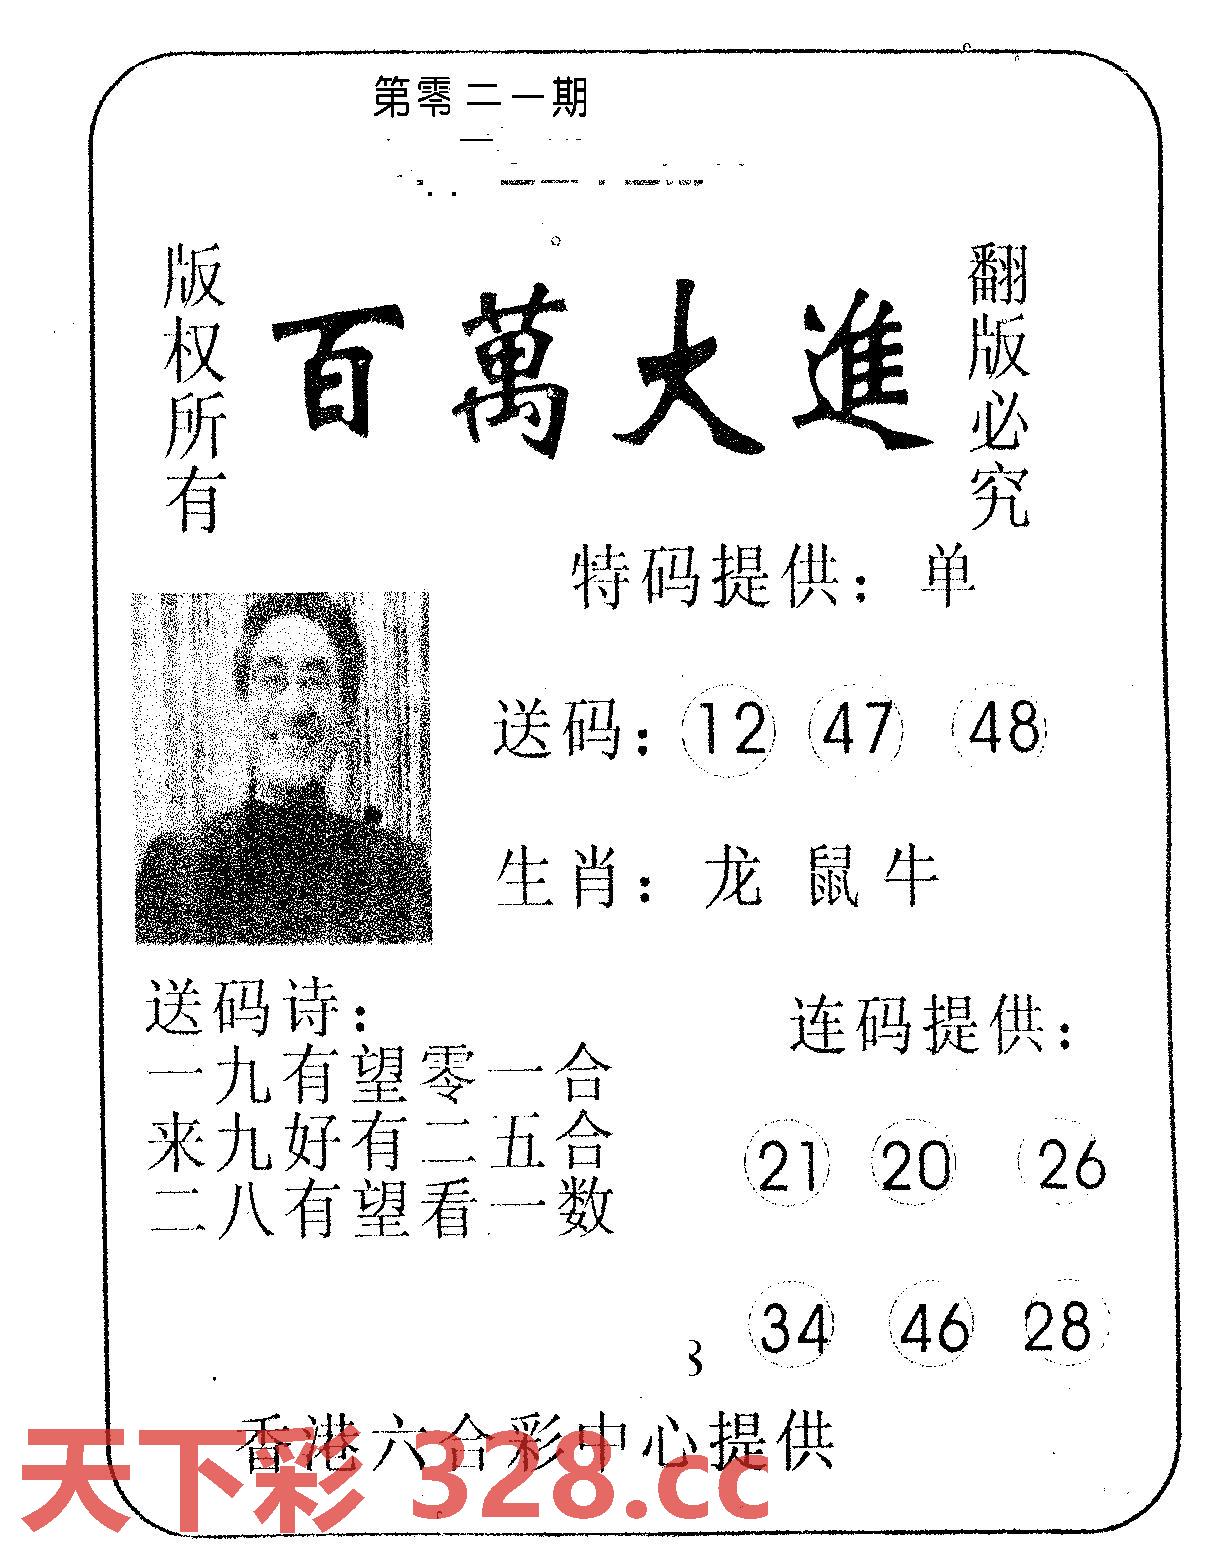 第零二一期
版权所有
百萬大進
翻版必究
特码提供：单
送码：12 47 48
生肖：龙 鼠 牛
送码诗：
一九有望零一合
来九好有二五合
二八有望看一数
连码提供：
21 20 26
34 46 28
香港六合彩中心提供
天下彩 328.cc